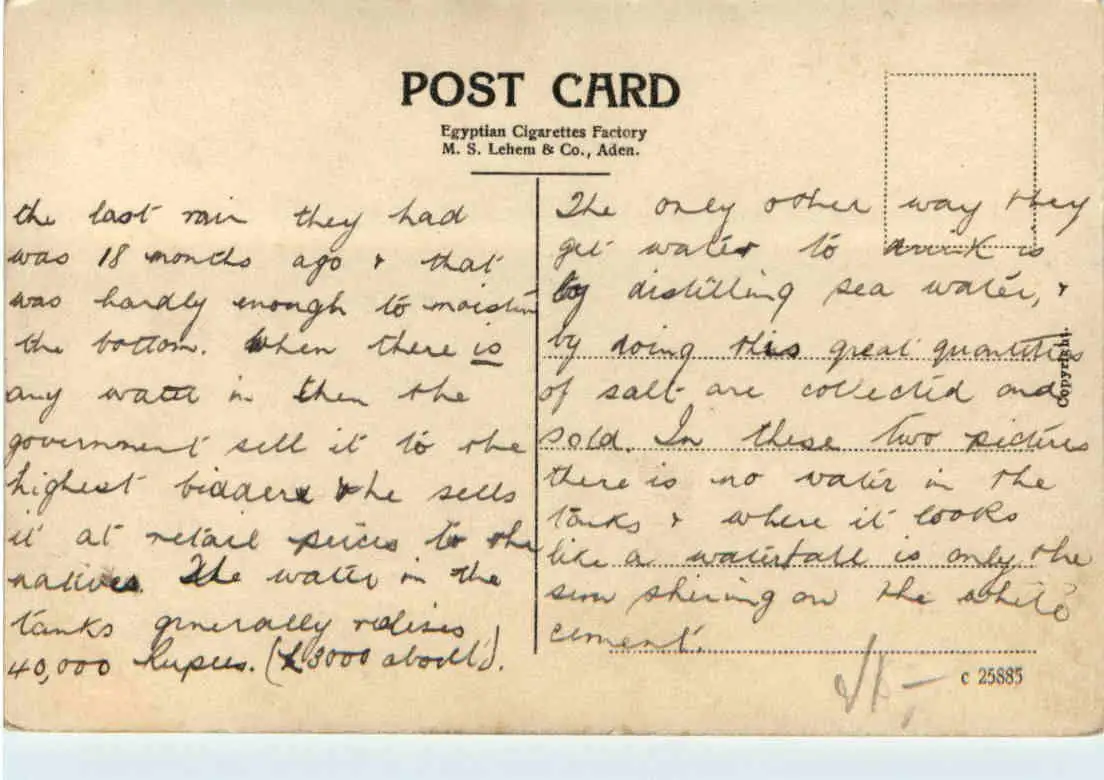 POST CARD
Egyptian Cigarettes Factory
M. S. Lehem & Co., Aden.
the last rain they had
was 18 months ago & that
was hardly enough to moisten
the bottom. When there is
any water in them the
government sell it to the
highest bidder & he sells
it at retail prices to the
natives. The water in the
tanks generally realises
40,000 Rupees. (£3000 about).
The only other way they
get water to drink is
by distilling sea water, &
by doing this great quantities
of salt are collected and
sold. In these two pictures
there is no water in the
tanks & where it looks
like a waterfall is only the
sun shining on the white
cement.
Copyright.
c 25885